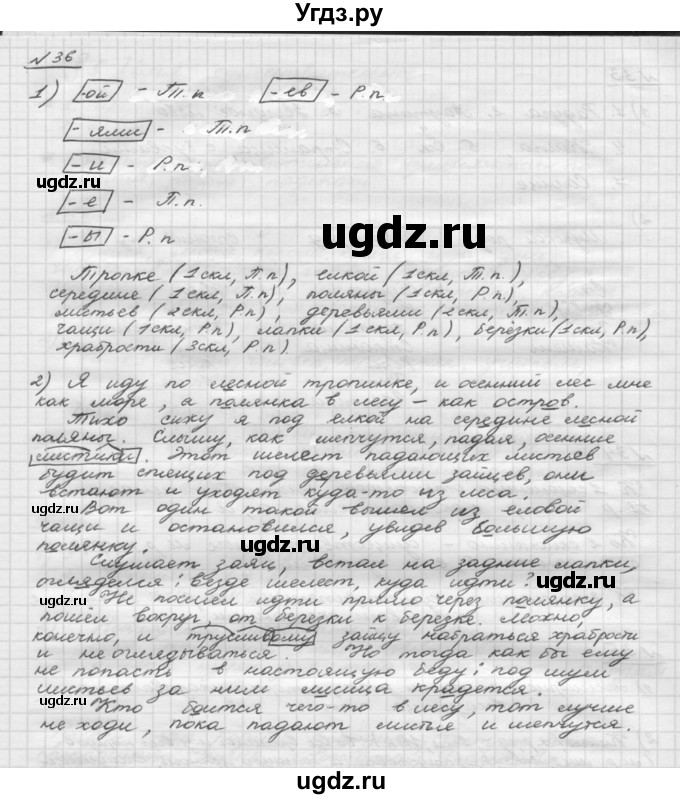 Угдз.ру
№ 36
1) -ой - Т.п -ев - Р.п.
-ями - Т.п
-и - Р.п.
ugdz.ru
-е - П.п.
ugdz.ru
-ы - Р.п
ugdz.ru
Тропке (1скл, П.п), елкой (1скл, Т.п.),
середине (1скл, П.п), поляны (1скл, Р.п),
листьев (2скл, Р.п), деревьями (2скл, Т.п),
чащи (1скл, Р.п), лапки (1скл, Р.п), березки (1скл, Р.п),
храбрости (3скл, Р.п)
2) Я иду по лесной тропинке, и осенний лес мне
как море, а полянка в лесу - как остров.
Тихо сижу я под елкой на середине лесной
поляны. Слышу, как шепчутся, падая, осенние
листики. Этот шелест падающих листьев
будит спящих под деревьями зайцев, они
встают и уходят куда-то из леса.
Вот один такой вышел из еловой
чащи и остановился, увидев большую
полянку.
ugdz.ru
ugdz.ru
Слушает заяц, встал на задние лапки,
огляделся: везде шелест, куда идти?
ugdz.ru
Не посмел идти прямо через полянку, а
пошёл вокруг, от березки к березке. Можно,
конечно, и трусливому зайцу набраться храбрости
и не оглядываться. Но тогда как бы ему
не попасть в настоящую беду: под шум
листьев за ним лисица крадется.
Кто боится чего-то в лесу, тот лучше
не ходи, пока падают листья и шепчутся.
ugdz.ru
ugdz.ru
ugdz.ru